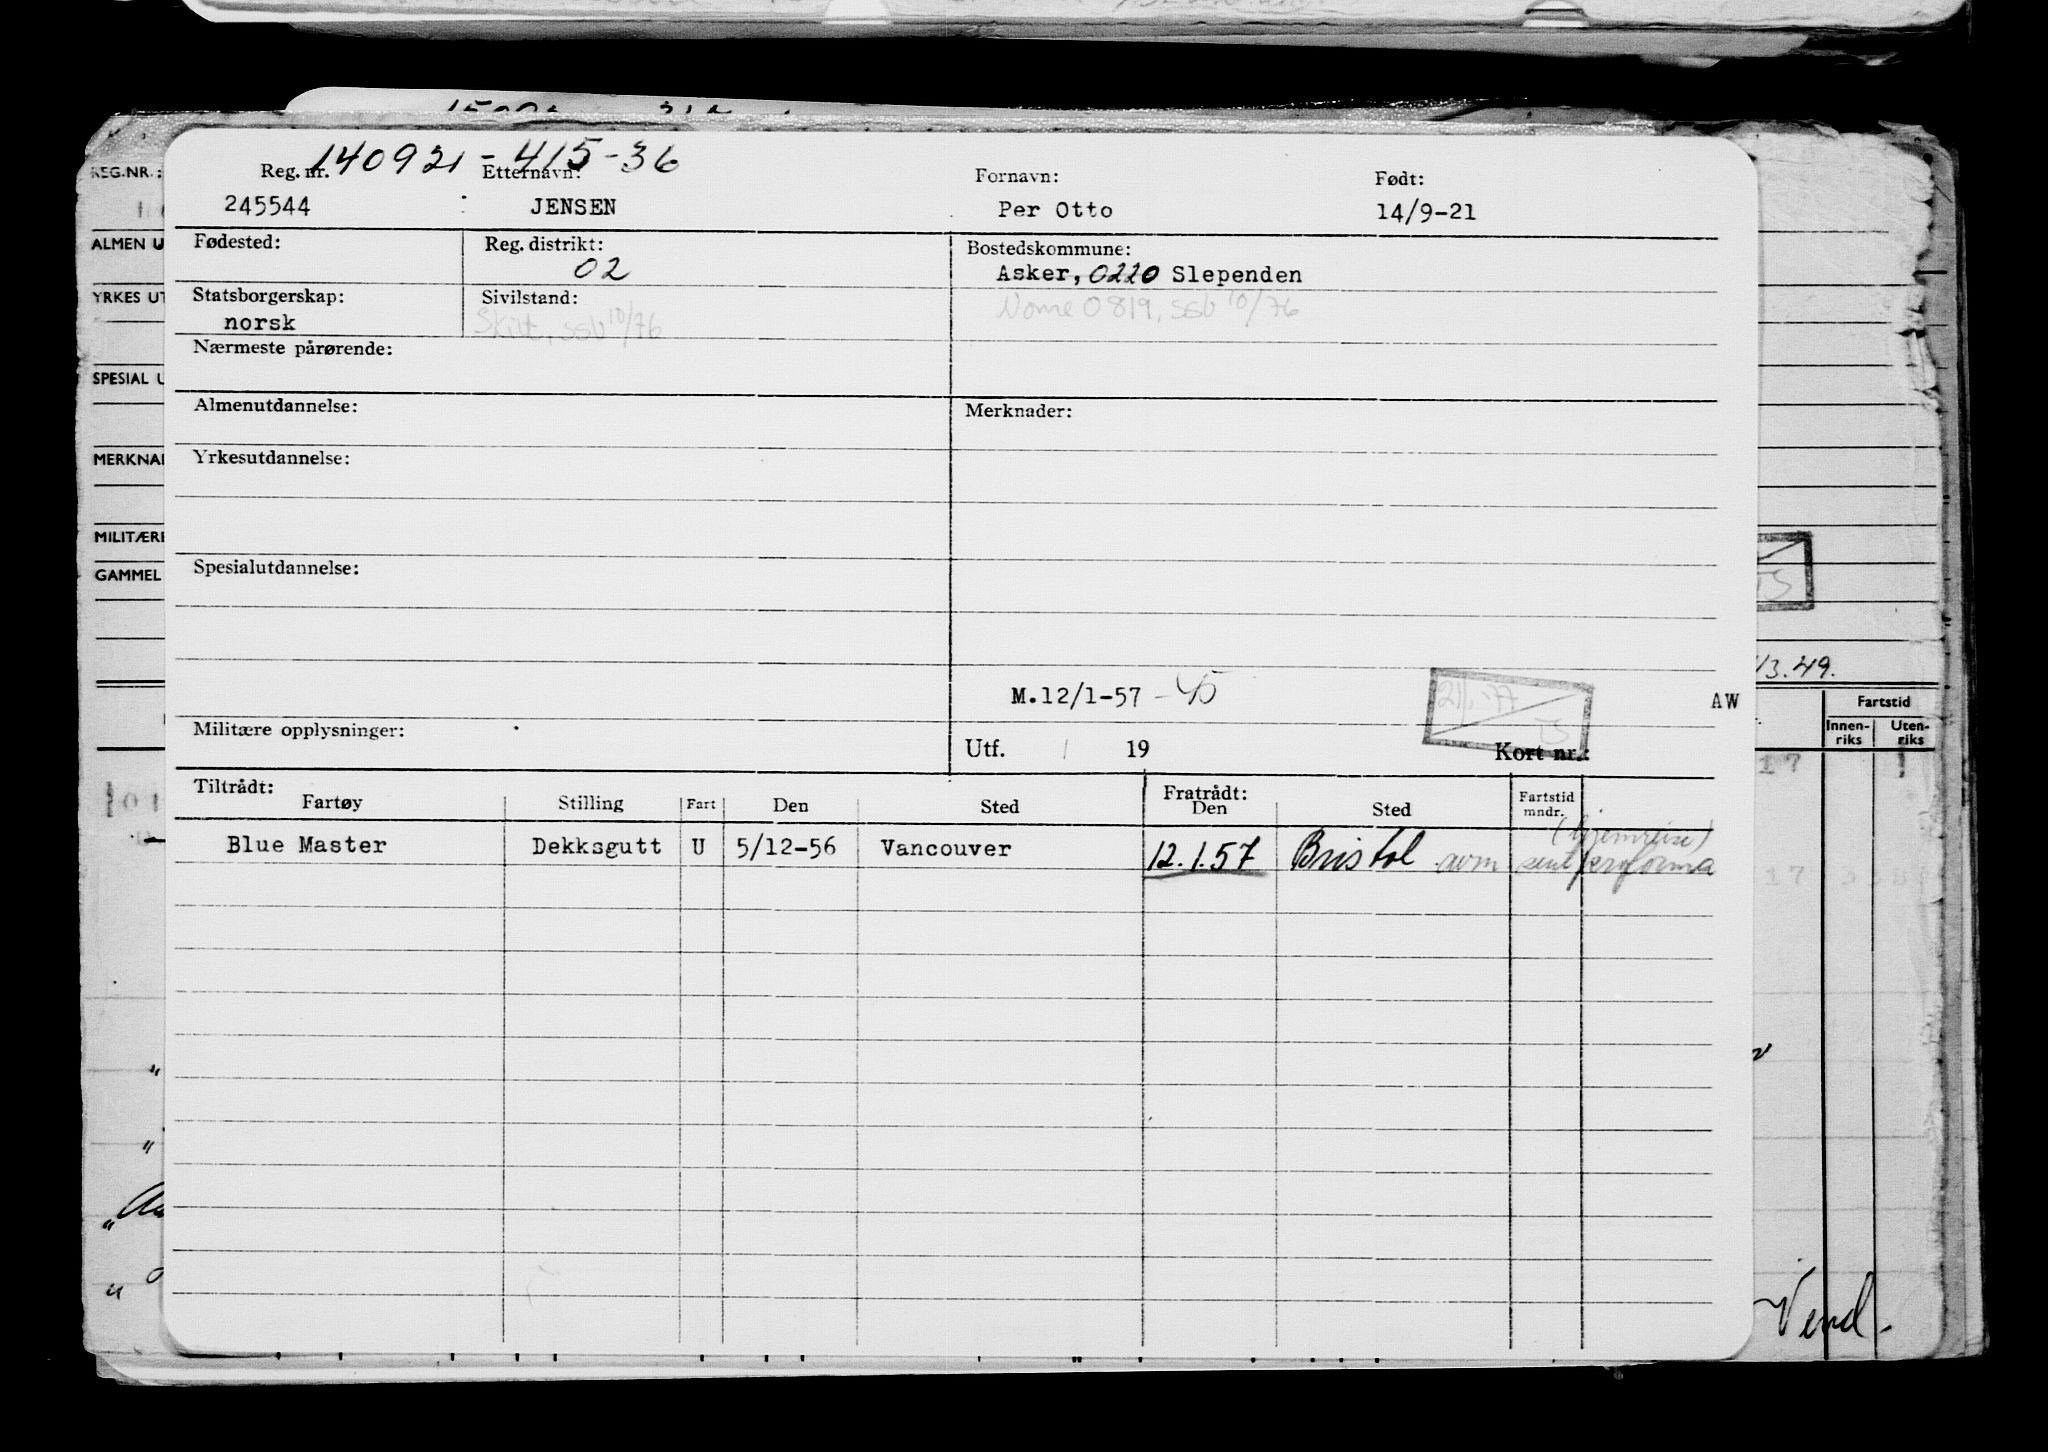 REG.NR.:
140921-415-36
Reg. nr. Etternavn: Fornavn: Født:
245544 JENSEN Per Otto 14/9-21
ALMEN U
Fødested: Reg. distrikt: Bostedskommune:
02 Asker, 0220 Slependen
YRKES UT
Statsborgerskap: Sivilstand: Nome 0819, ssb 10/76
norsk Skilt, ssb 10/76
Nærmeste pårørende:
SPESIAL U
Almenutdannelse: Merknader:
MERKNAD
Yrkesutdannelse:
MILITÆRE
Spesialutdannelse:
GAMMEL
13.49.
M.12/1-57 -45 AW
Militære opplysninger: Utf. 19 Kort nr.:
Fartstid
Innen-riks Uten-riks
Tiltrådt: Fratrådt:
Fartøy Stilling Fart Den Sted Den Sted Fartstid mndr.
(hjemreise)
Blue Master Dekksgutt U 5/12-56 Vancouver 12.1.57 Bristol
Vend.